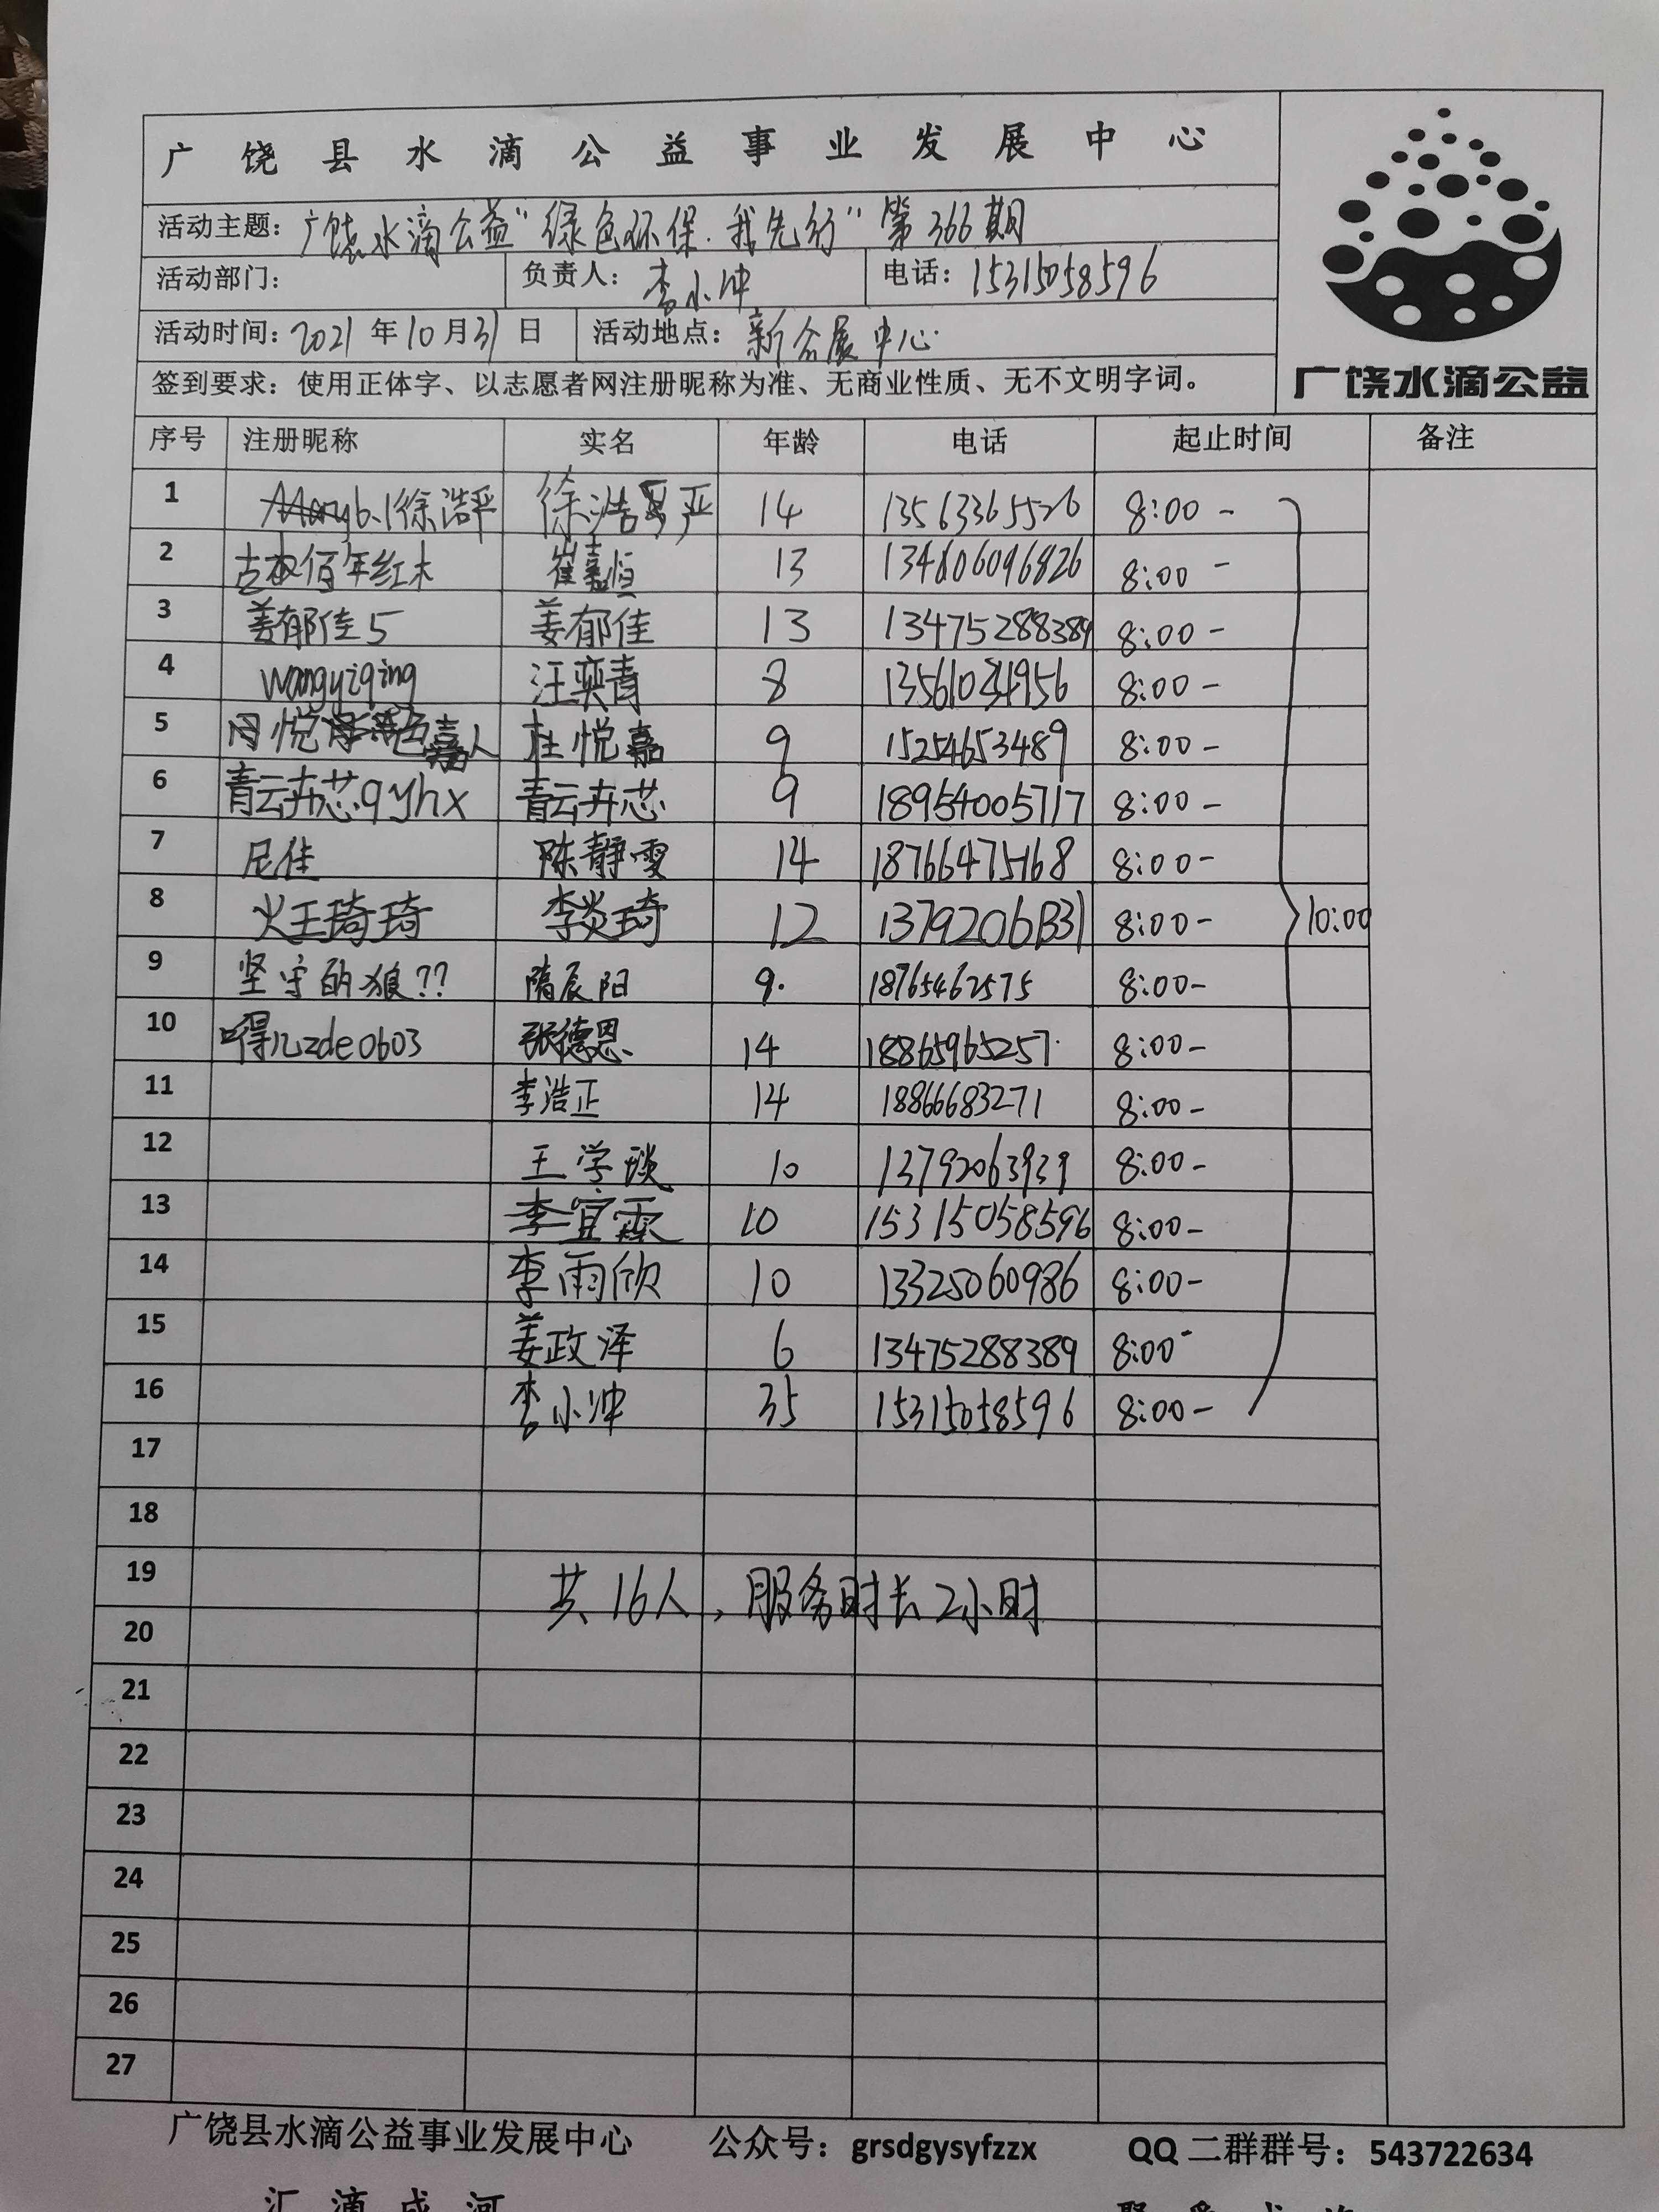 广饶县水滴公益事业发展中心
活动主题：广饶水滴公益“绿色环保.我先行”第366期
活动部门： 负责人：李小冲 电话：15315058596
活动时间：2021年10月31日 活动地点：新会展中心
签到要求：使用正体字、以志愿者网注册昵称为准、无商业性质、无不文明字词。
广饶水滴公益
序号 注册昵称 实名 年龄 电话 起止时间 备注
1 徐浩严 徐浩严 14 13563365526 8:00-
2 佰年红木 崔嘉恒 13 134606096826 8:00-
3 姜郁佳5 姜郁佳 13 13475288389 8:00-
4 wangyiqing 汪奕青 8 8:00-
5 杜悦嘉 9 15254653489 8:00-
6 青云卉芯qyhx 青云卉芯 9 18954005717 8:00-
7 尼佳 陈静雯 14 18766475168 8:00-
8 火王琦琦 李炎琦 12 13792061331 8:00- 10:00
9 坚守的狼?? 隋辰阳 9. 18765462575 8:00-
10 嘚儿zde0603 张德恩 14 18865965257 8:00-
11 李浩正 14 18866683271 8:00-
12 王学琰 10 13792063939 8:00-
13 李宜霖 10 15315058596 8:00-
14 李雨欣 10 13325060986 8:00-
15 姜政泽 6 13475288389 8:00-
16 李小冲 35 15315058596 8:00-
17
18
19 共16人，服务时长2小时
20
21
22
23
24
25
26
27
广饶县水滴公益事业发展中心 公众号：grsdgysyfzzx QQ二群群号：543722634
汇滴成河